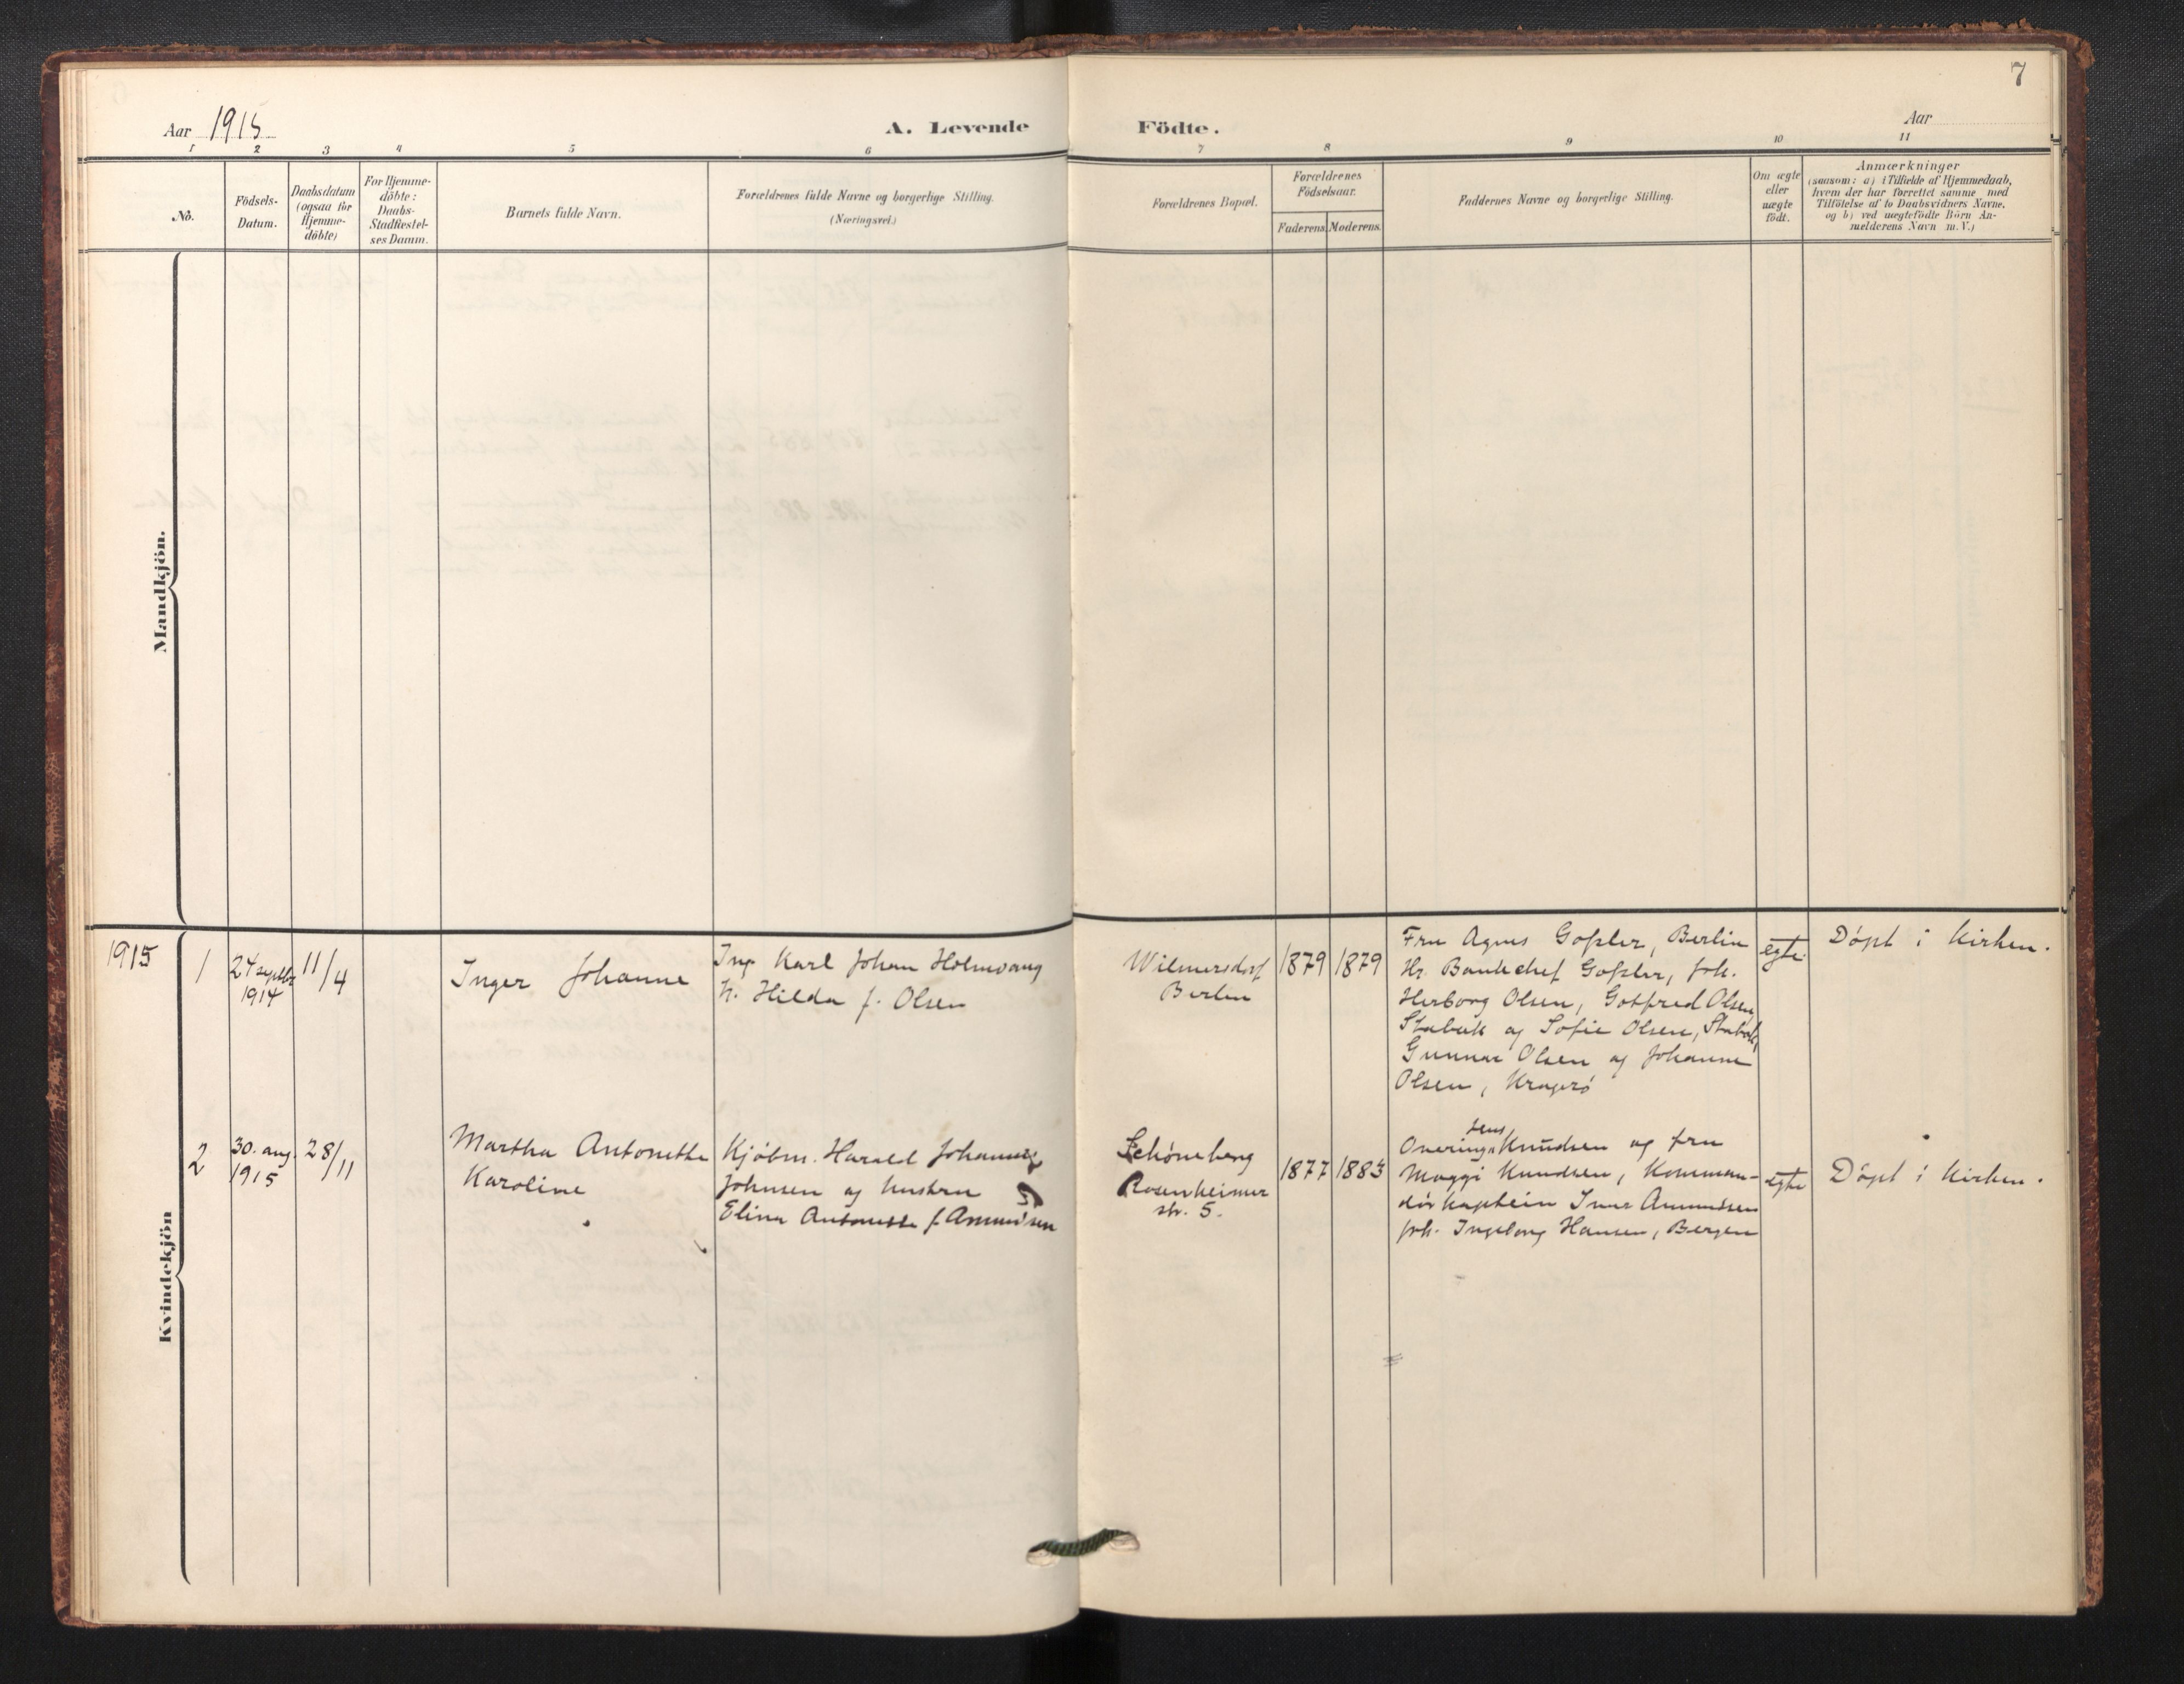 7
Aar 1915
A. Levende Födte.
Aar
1 2 3 4 5 6 7 8 9 10 11
No.
Födsels-
Datum.
Daabsdatum
(ogsaa for
Hjemme-
döbte)
For Hjemme-
döbte:
Daabs-
Stadfæstel-
ses Datum.
Barnets fulde Navn.
Forældrenes fulde Navne og borgerlige Stilling.
(Næringsvei.)
Forældrenes Bopæl.
Forældrenes
Födselsaar.
Faderens.
Moderens.
Faddernes Navne og borgerlige Stilling.
Om ægte
eller
uægte
födt.
Anmærkninger
(saasom: a) i Tilfælde af Hjemmedaab,
hvem der har forrettet samme med
Tilföielse af to Daabsvidners Navne,
og b) ved uægtefödte Börn An-
melderens Navn m. V.)
Mandkjön.
Kvindekjön
1915
1
24 septbr
1914
11/4
Inger Johanne
Ing. Karl Johan Holmvang
h. Hilda f. Olsen
Wilmersdorf
Berlin
1879
1879
Fru Agnes Gossler, Berlin
Hr. Bankchef Gossler, frk.
Herborg Olsen, Gotfred Olsen,
Stabæk og Sofie Olsen, Stabæk,
Gunnar Olsen og Johanne
Olsen, Kragerö
egte.
Döpt i Kirken.
2
30. aug.
1915
28/11
Martha Antonette
Karoline
Kjöbm. Harald Johannes
Johnsen og hustru
Elina Antonette f. Amundsen
Schöneberg
Rosenheimer
str. 5.
1877
1883
Knudsen og fru
Maggi Knudsen, Komman-
dörkaptein Amundsen
frk. Ingeborg Hansen, Bergen
egte
Döpt i Kirken.